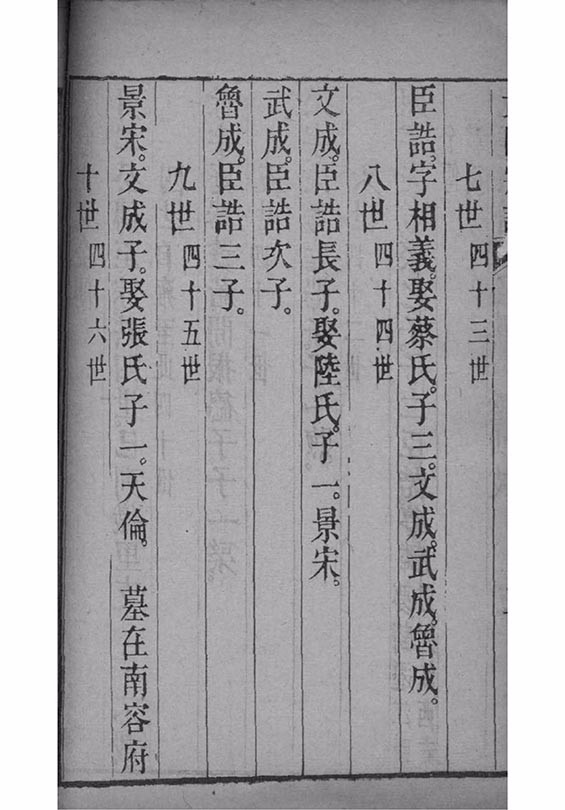 七世四十三世
臣誥。字相義。娶蔡氏。子三。文成。武成。魯成。
八世四十四世
文成。臣誥長子。娶陸氏。子一。景宋。
武成。臣誥次子。
魯成。臣誥三子。
九世四十五世
景宋。文成子。娶張氏子一。天倫。　墓在南容府
十世四十六世